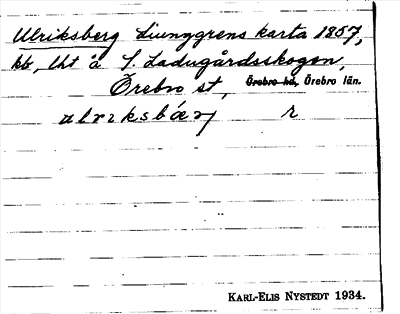 Ulriksberg Ljunggrens karta 1857,
kb, lht å S. Ladugårdsskogen,
Örebro st, Örebro hd, Örebro län.
ulriksbærj r
KARL-ELIS NYSTEDT 1934.